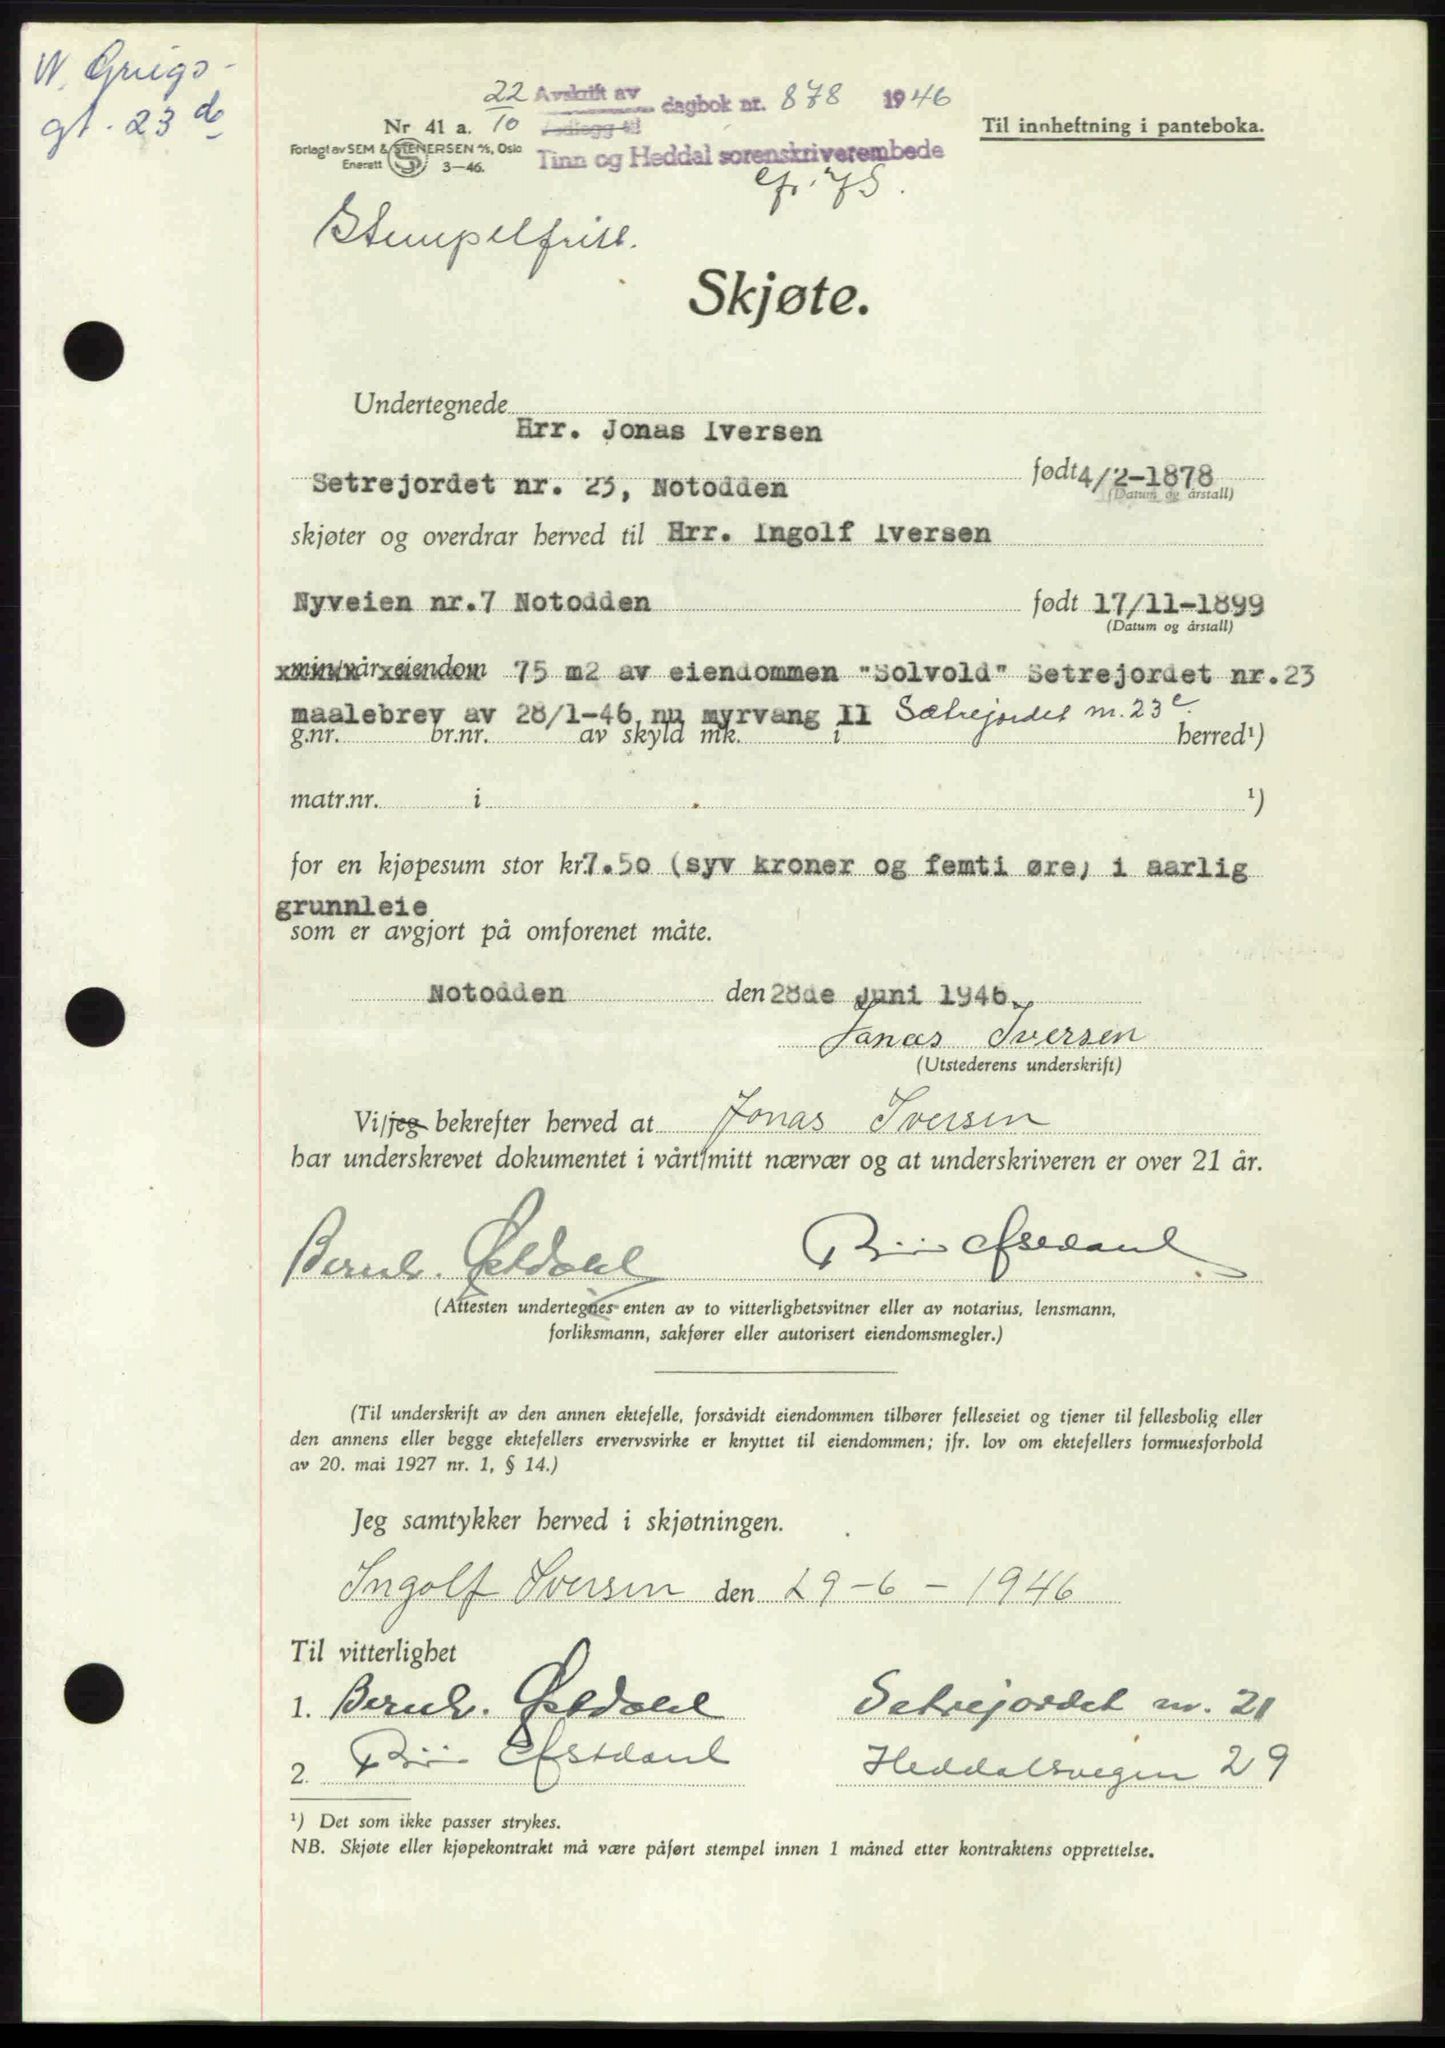 W. Griegs-
gt. 23 de
22/10
Avskrift av
dagbok nr. 878 1946
Vedlegg til
Tinn og Heddal sorenskriverembede
Nr 41 a.
Forlagt av SEM & STENERSEN A/S, Oslo
Enerett S 3—46.
Til innheftning i panteboka.
Stempelfritt.
Skjøte.
Undertegnede
Hrr. Jonas Iversen
Setrejordet nr. 23, Notodden født 4/2-1878
(Datum og årstall)
skjøter og overdrar herved til Hrr. Ingolf Iversen
Nyveien nr.7 Notodden født 17/11-1899
(Datum og årstall)
min/vår eiendom 75 m2 av eiendommen "Solvold" Setrejordet nr.23
maalebrev av 28/1-46, nu myrvang II Sætrejordet nr. 23 e.
g.nr. br.nr. av skyld mk. i herred¹)
matr.nr. i ¹)
for en kjøpesum stor kr. 7.50 (syv kroner og femti øre) i aarlig
grunnleie
som er avgjort på omforenet måte.
Notodden den 28de juni 1946.
Jonas Iversen
(Utstederens underskrift)
Vi/jeg bekrefter herved at Jonas Iversen
har underskrevet dokumentet i vårt/mitt nærvær og at underskriveren er over 21 år.
Bernh. Østdahl
(Attesten undertegnes enten av to vitterlighetsvitner eller av notarius, lensmann,
forliksmann, sakfører eller autorisert eiendomsmegler.)
(Til underskrift av den annen ektefelle, forsåvidt eiendommen tilhører felleseiet og tjener til fellesbolig eller
den annens eller begge ektefellers ervervsvirke er knyttet til eiendommen; jfr. lov om ektefellers formuesforhold
av 20. mai 1927 nr. 1, § 14.)
Jeg samtykker herved i skjøtningen.
Ingolf Iversen den 29-6-1946
Til vitterlighet
1. Bernh. Østdahl Setrejordet nr. 21
2. Heddalsvegen 29
¹) Det som ikke passer strykes.
NB. Skjøte eller kjøpekontrakt må være påført stempel innen 1 måned etter kontraktens opprettelse.